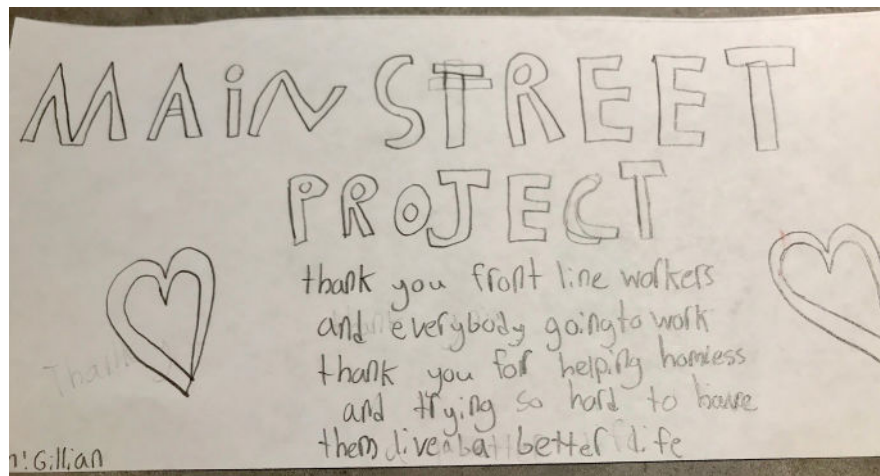 MAiN STREET
PROJECT
thank you front line workers
and everybody going to work
thank you for helping homless
and trying so hard to have
them live a better life
Gillian